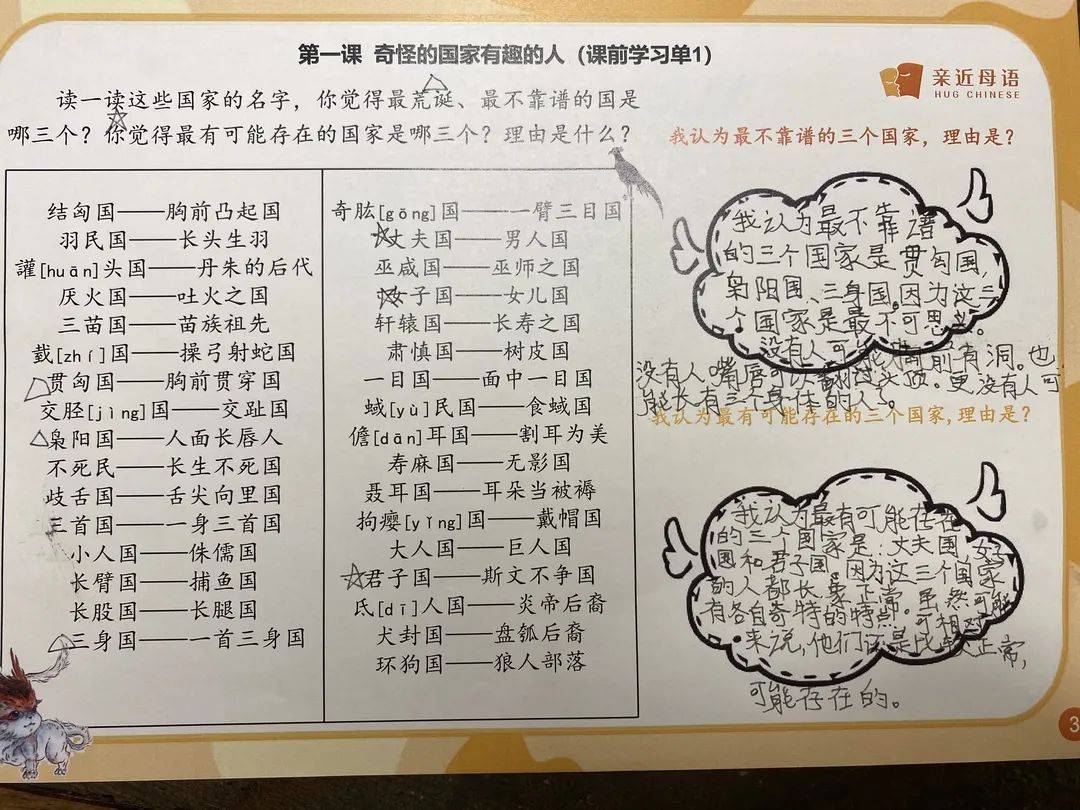 第一课 奇怪的国家有趣的人（课前学习单1）
亲近母语
HUG CHINESE
读一读这些国家的名字，你觉得最荒诞、最不靠谱的国是
哪三个？你觉得最有可能存在的国家是哪三个？理由是什么？
结匈国——胸前凸起国
羽民国——长头生羽
讙[huān]头国——丹朱的后代
厌火国——吐火之国
三苗国——苗族祖先
臷[zhí]国——操弓射蛇国
贯匈国——胸前贯穿国
交胫[jìng]国——交趾国
枭阳国——人面长唇人
不死民——长生不死国
歧舌国——舌尖向里国
三首国——一身三首国
小人国——侏儒国
长臂国——捕鱼国
长股国——长腿国
三身国——一首三身国
奇肱[gōng]国——一臂三目国
丈夫国——男人国
巫咸国——巫师之国
女子国——女儿国
轩辕国——长寿之国
肃慎国——树皮国
一目国——面中一目国
蜮[yù]民国——食蜮国
儋[dān]耳国——割耳为美
寿麻国——无影国
聂耳国——耳朵当被褥
拘瘿[yǐng]国——戴帽国
大人国——巨人国
君子国——斯文不争国
氐[dī]人国——炎帝后裔
犬封国——盘瓠后裔
环狗国——狼人部落
我认为最不靠谱的三个国家，理由是？
我认为最不靠谱
的三个国家是贯匈国，
枭阳国、三身国。因为这三
个国家是最不可思议。
没有人可能胸前有洞。也
没有人嘴唇可以翻过头顶。更没有人可
能长有三个身体的人了。
我认为最有可能存在的三个国家，理由是？
我认为最有可能存在
的三个国家是：丈夫国，女子
国和君子国。因为这三个国家
的人都长要正常。虽然可能
有各自奇特的特点。可相对
来说，他们还是比较正常，
可能存在的。
3